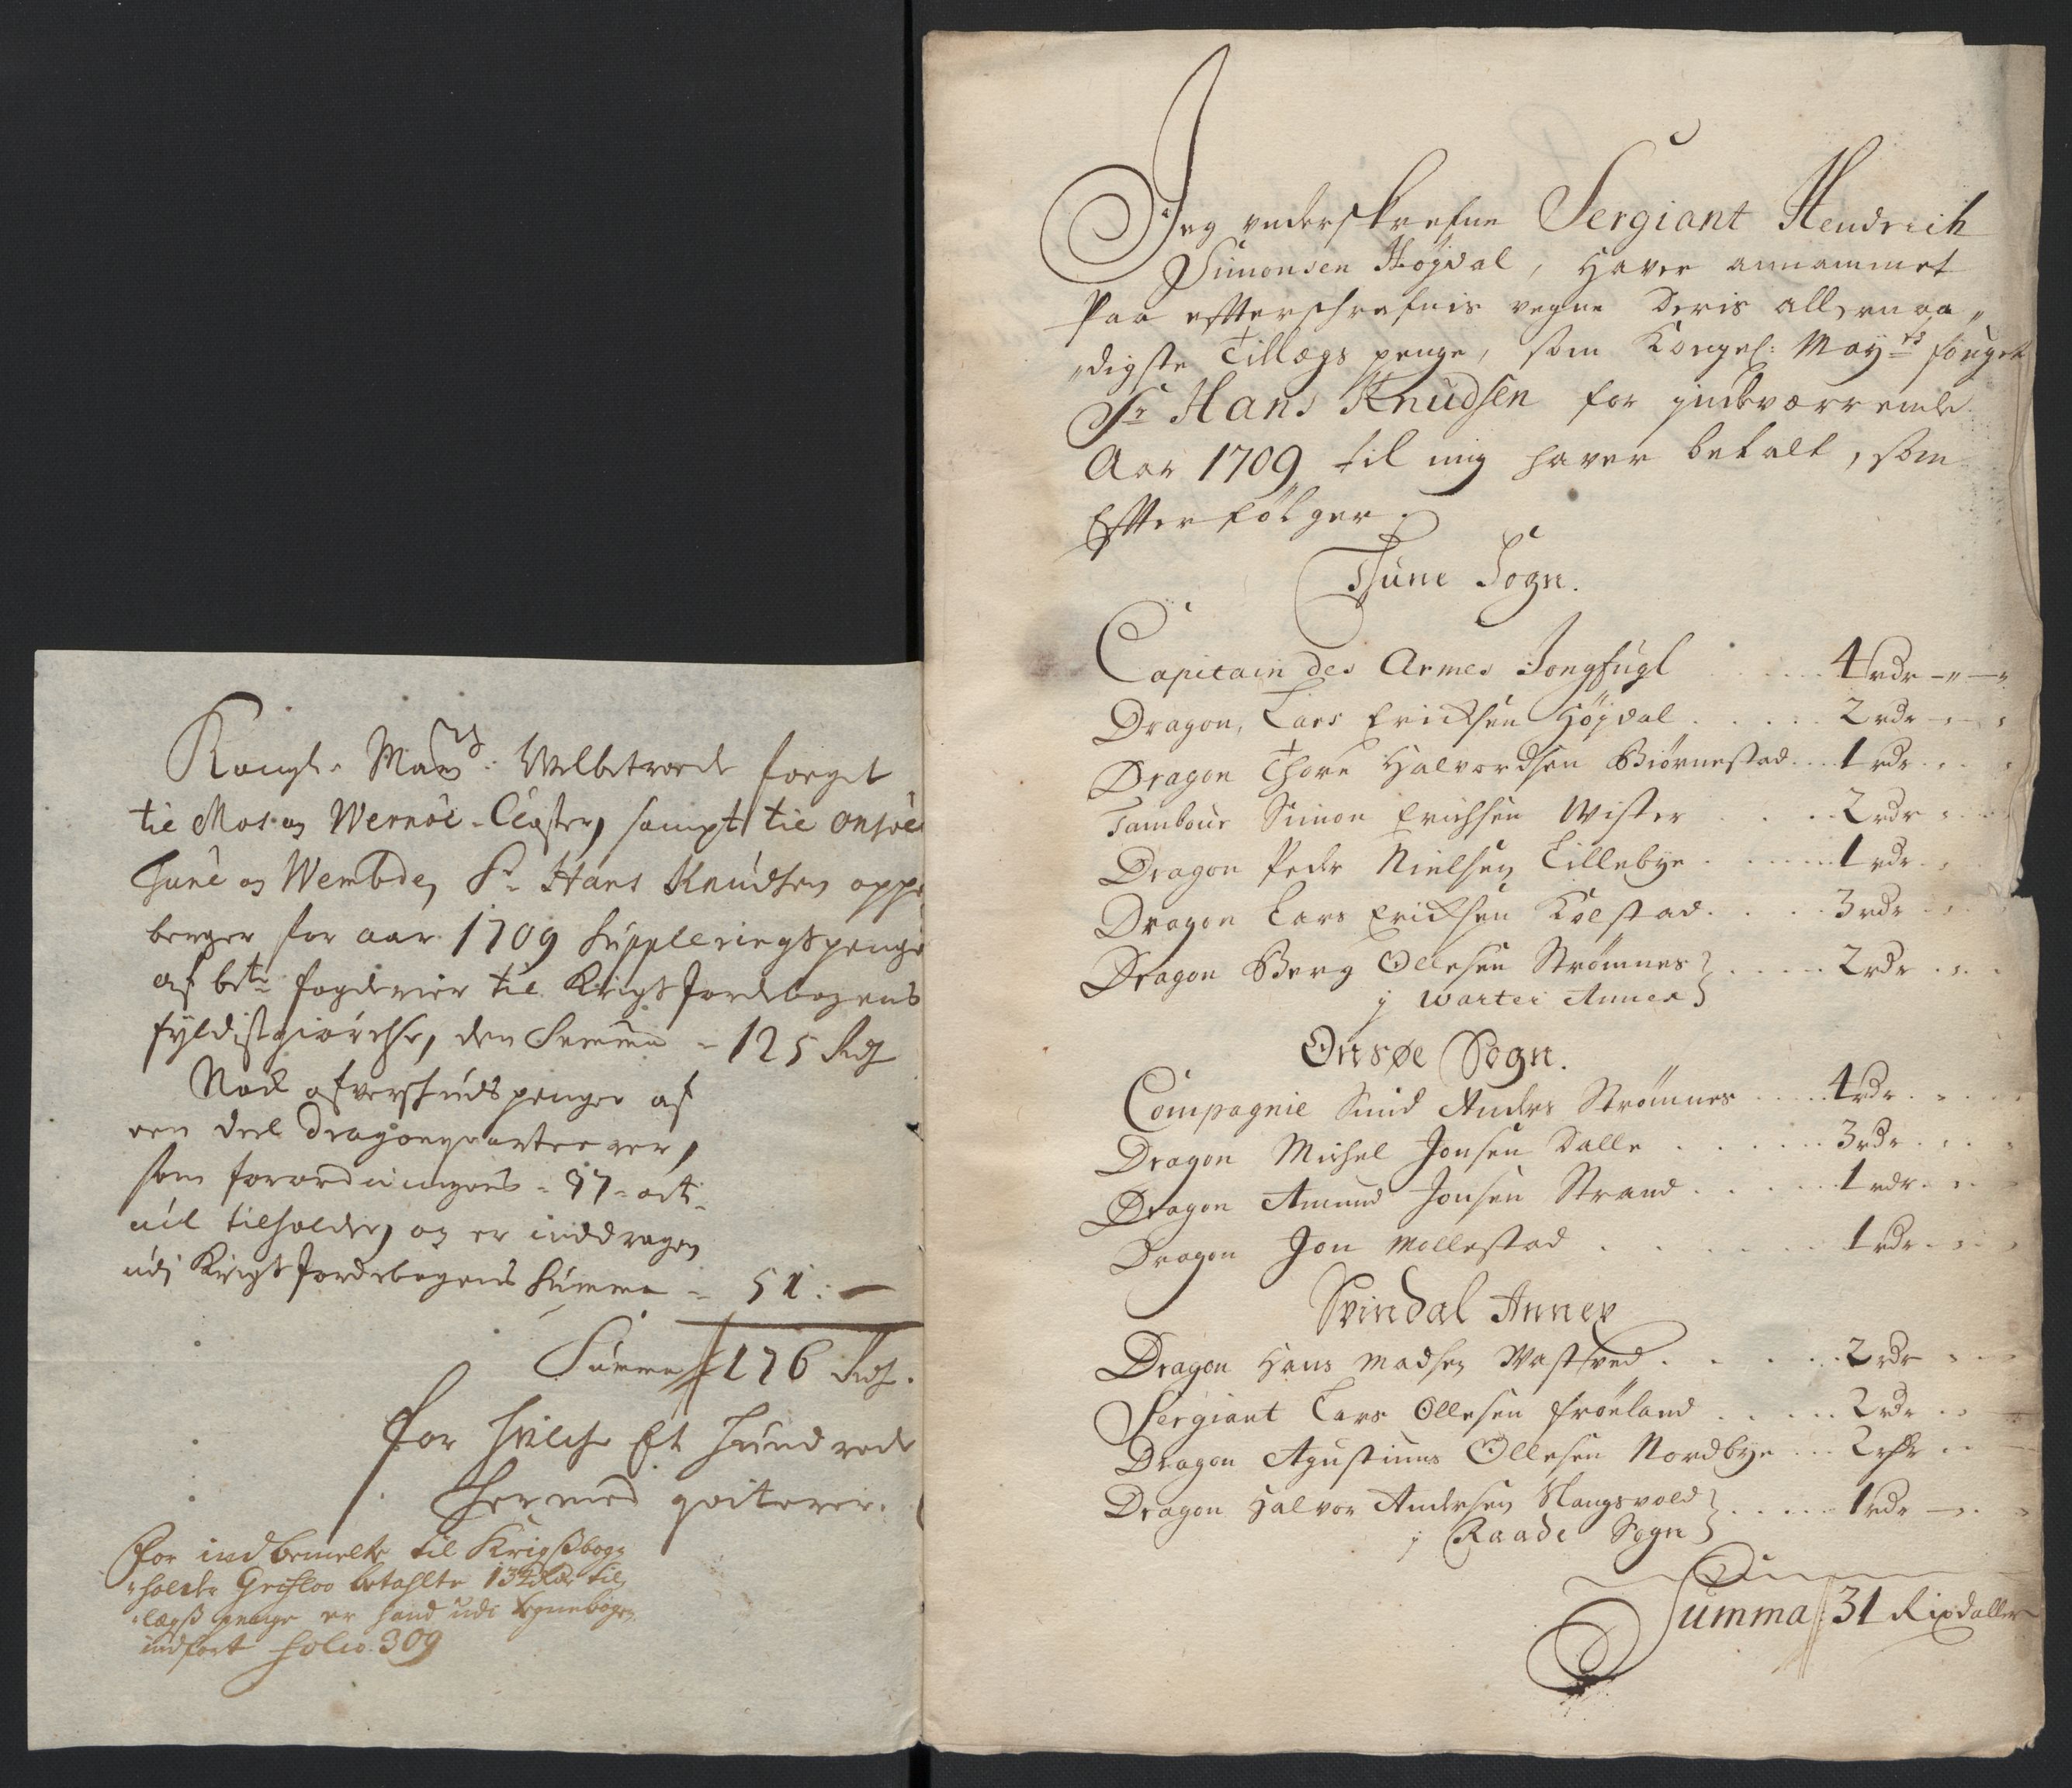 Kongl. May:ts Velbetroede foeget
til Mos og Wernöe Closter, sampt til Onsöe
Tune og Wembde, Sr. Hans Knudsen oppe
berger for aar 1709 Suppleringspenge
af bete fogderier til Krigs Jordebogens
fyldistgiörelse, den Summa - 125 Rdr
Nock ofverskuds penger af
een deel dragonquarteerer,
som forordningens 97 art:
vil tilholde, og er inddragen
udj Krigs Jordebogens Summa - 51: -
Summa 176 Rdr.
For hvilche Et hundrede
hermed qviterer.
For indbemelte til Krigsbog
holder Grifloo betahlte 134 rdr til
lægs penge er hand udi regnebogen
indfört folio. 309
Jeg underskrefne Sergiant Hendrich
Simonsen Högdal, Haver annammet
Paa effterschrefnis vegne Deris allernaa„
„digste Tillægs penge, som Kongel: May:ts fouget
Sr Hans Knudsen for indeværrende
Aar 1709 til mig haver betalt, som
Effterfölger.
Tune Sogn.
Capitain des Armes Jongfugl . . . . . 4 rdr - " - "
Dragon, Lars Ericksen Höjdal . . . . . 2 rdr
Dragon Thore Halvordsen Biörnestad . . . 1 rdr
Tambour Simon Erichsen Wister . . . . 2 rdr
Dragon Peder Nielsen Lillebye . . . . . 1 rdr
Dragon Lars Ericksen Kolstad . . . . 3 rdr
Dragon Berg Ollesen Strömnes } . . . . 2 rdr
j Warter Annex }
Onsøe Sogn.
Compagnie Smid Anders Strömnes . . . . 4 rdr
Dragon Michel Jonsen Dalle . . . . . 3 rdr
Dragon Amund Jonsen Strand . . . . . 1 rdr
Dragon Jon Mollestad . . . . . . 1 rdr
Svindal Annex
Dragon Hans Madsen Wastved . . . . . 2 rdr
Sergiant Lars Ollesen Fröeland . . . . . 2 rdr
Dragon Agustinus Ollesen Nordbye . . . 2 rdr
Dragon Halvor Andersen Slangsvold } . . . . . 1 rdr
j Raade Sogn }
Summa 31 Rixdaller